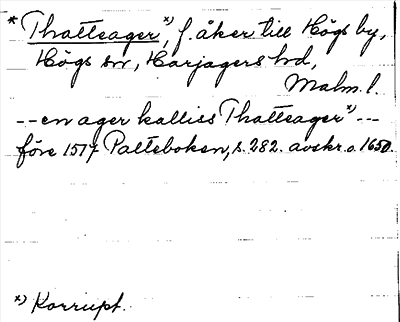 * Thattsager*), f. åker till Högs by,
Högs sn, Harjagers hd,
Malm. l.
-- en ager kalliss Thattsager*) --
före 1517 Palteboken, s. 282. avskr. o. 1650.
*) Korrupt.